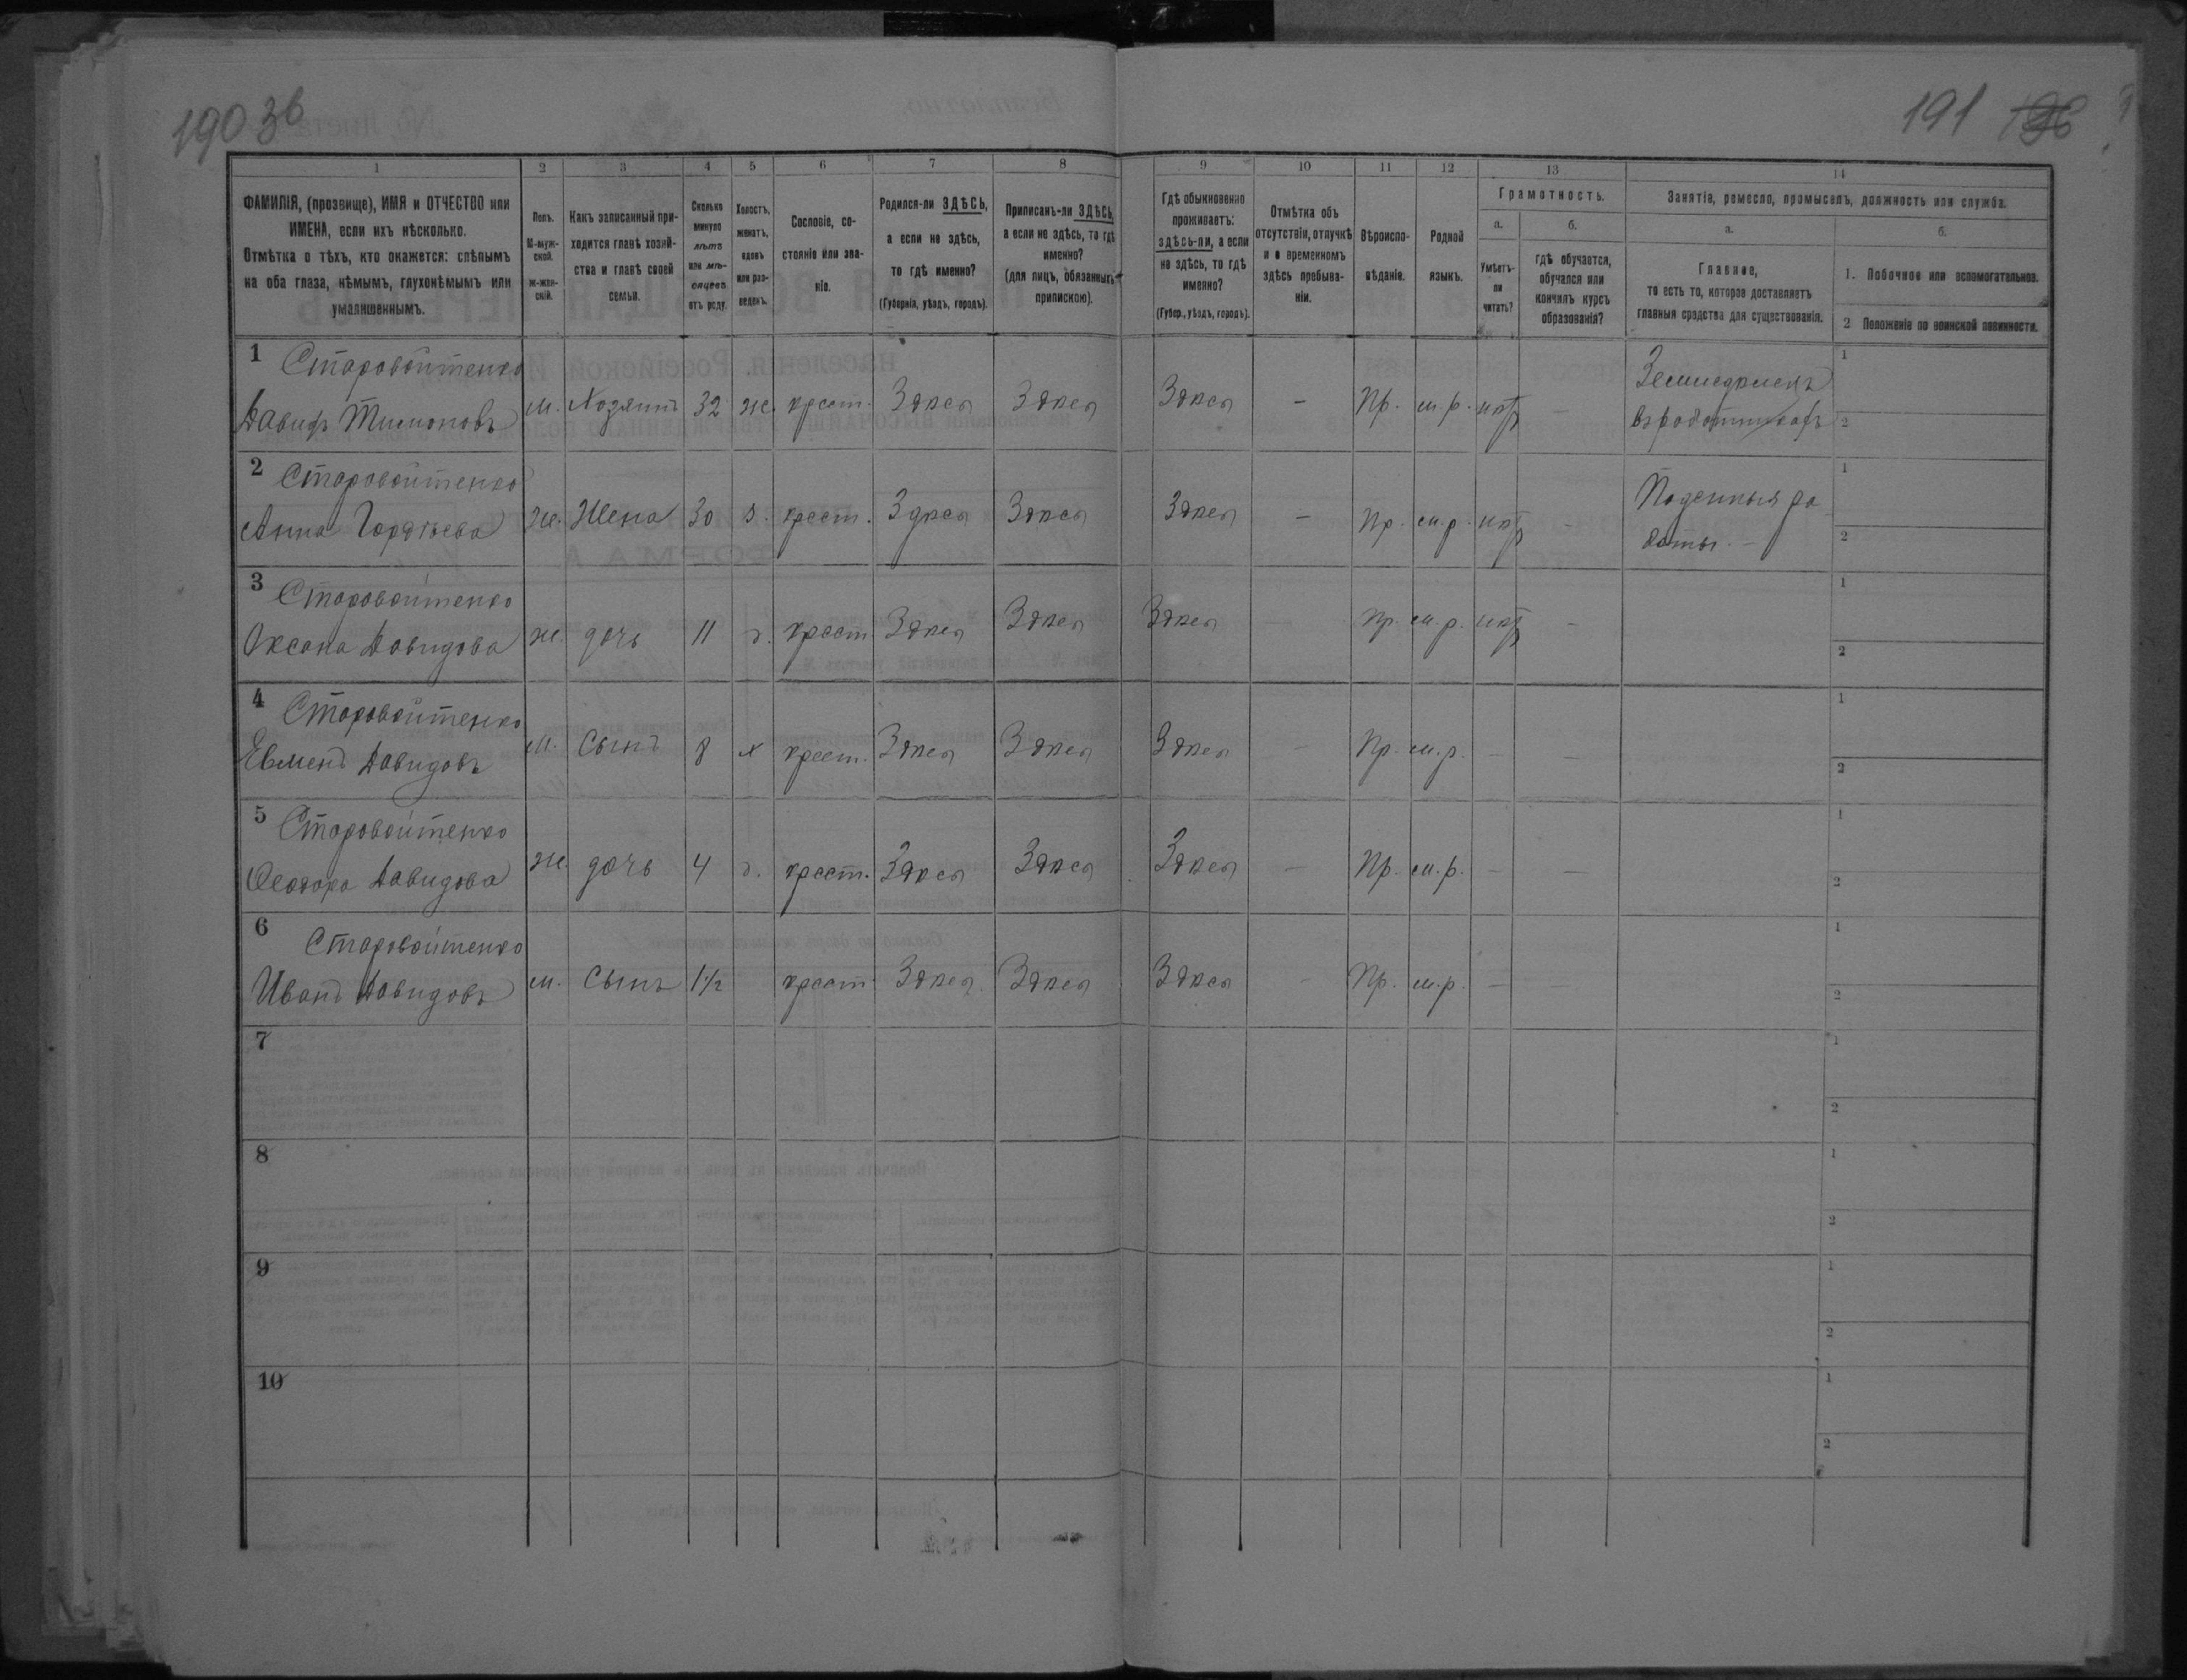 190 зв
191
1 2 3 4 5 6 7 8 9 10 11 12 13 14
ФАМИЛІЯ, (прозвище), ИМЯ и ОТЧЕСТВО или
ИМЕНА, если ихъ нѣсколько.
Отмѣтка о тѣхъ, кто окажется: слѣпымъ
на оба глаза, нѣмымъ, глухонѣмымъ или
умалишеннымъ.
Полъ.
М-муж-
ской.
Ж-жен-
скій.
Какъ записанный при-
ходится главѣ хозяй-
ства и главѣ своей
семьи.
Сколько
минуло
лѣтъ
или мѣ-
сяцевъ
отъ роду.
Холостъ,
женатъ,
вдовъ
или раз-
веденъ.
Сословіе, со-
стояніе или зва-
ніе.
Родился-ли ЗДѢСЬ,
а если не здѣсь,
то гдѣ именно?
(Губернія, уѣздъ, городъ).
Приписанъ-ли ЗДѢСЬ,
а если не здѣсь, то гдѣ
именно?
(для лицъ, обязанныхъ
припискою).
Гдѣ обыкновенно
проживаетъ:
здѣсь-ли, а если
не здѣсь, то гдѣ
именно?
(Губер., уѣздъ, городъ).
Отмѣтка объ
отсутствіи, отлучкѣ
и о временномъ
здѣсь пребыва-
ніи.
Вѣроиспо-
вѣданіе.
Родной
языкъ.
Грамотность.
а.
Умѣетъ-
ли
читать?
б.
гдѣ обучается,
обучался или
кончилъ курсъ
образованія?
Занятіе, ремесло, промыселъ, должность или служба.
а.
Главное,
то есть то, которое доставляетъ
главныя средства для существованія.
б.
1. Побочное или вспомогательное.
2 Положеніе по воинской повинности.
1 Старовойтенко
Давидъ Тимоновъ м. Хозяинъ 32 ж. крест. Здѣсь Здѣсь Здѣсь - Пр. м.р. нѣтъ -
Земледѣлецъ
1
2
2 Старовойтенко
Анна Гордѣева ж. Жена 30 з. крест. Здѣсь Здѣсь Здѣсь - Пр. м.р. нѣтъ -
Поденныя ра
боты. -
1
2
3 Старовойтенко
Оксана Давидова ж. дочь 11 д. крест. Здѣсь Здѣсь Здѣсь - Пр. м.р. нѣтъ -
1
2
4 Старовойтенко
Евменъ Давидовъ м. Сынъ 8 х крест. Здѣсь Здѣсь Здѣсь - Пр. м.р. - -
1
2
5 Старовойтенко
Ѳеодора Давидова ж. дочь 4 д. крест. Здѣсь Здѣсь Здѣсь - Пр. м.р. - -
1
2
6 Старовойтенко
Иванъ Давидовъ м. Сынъ 1½ крест. Здѣсь Здѣсь Здѣсь - Пр. м.р. - -
1
2
7
1
2
8
1
2
9
1
2
10
1
2